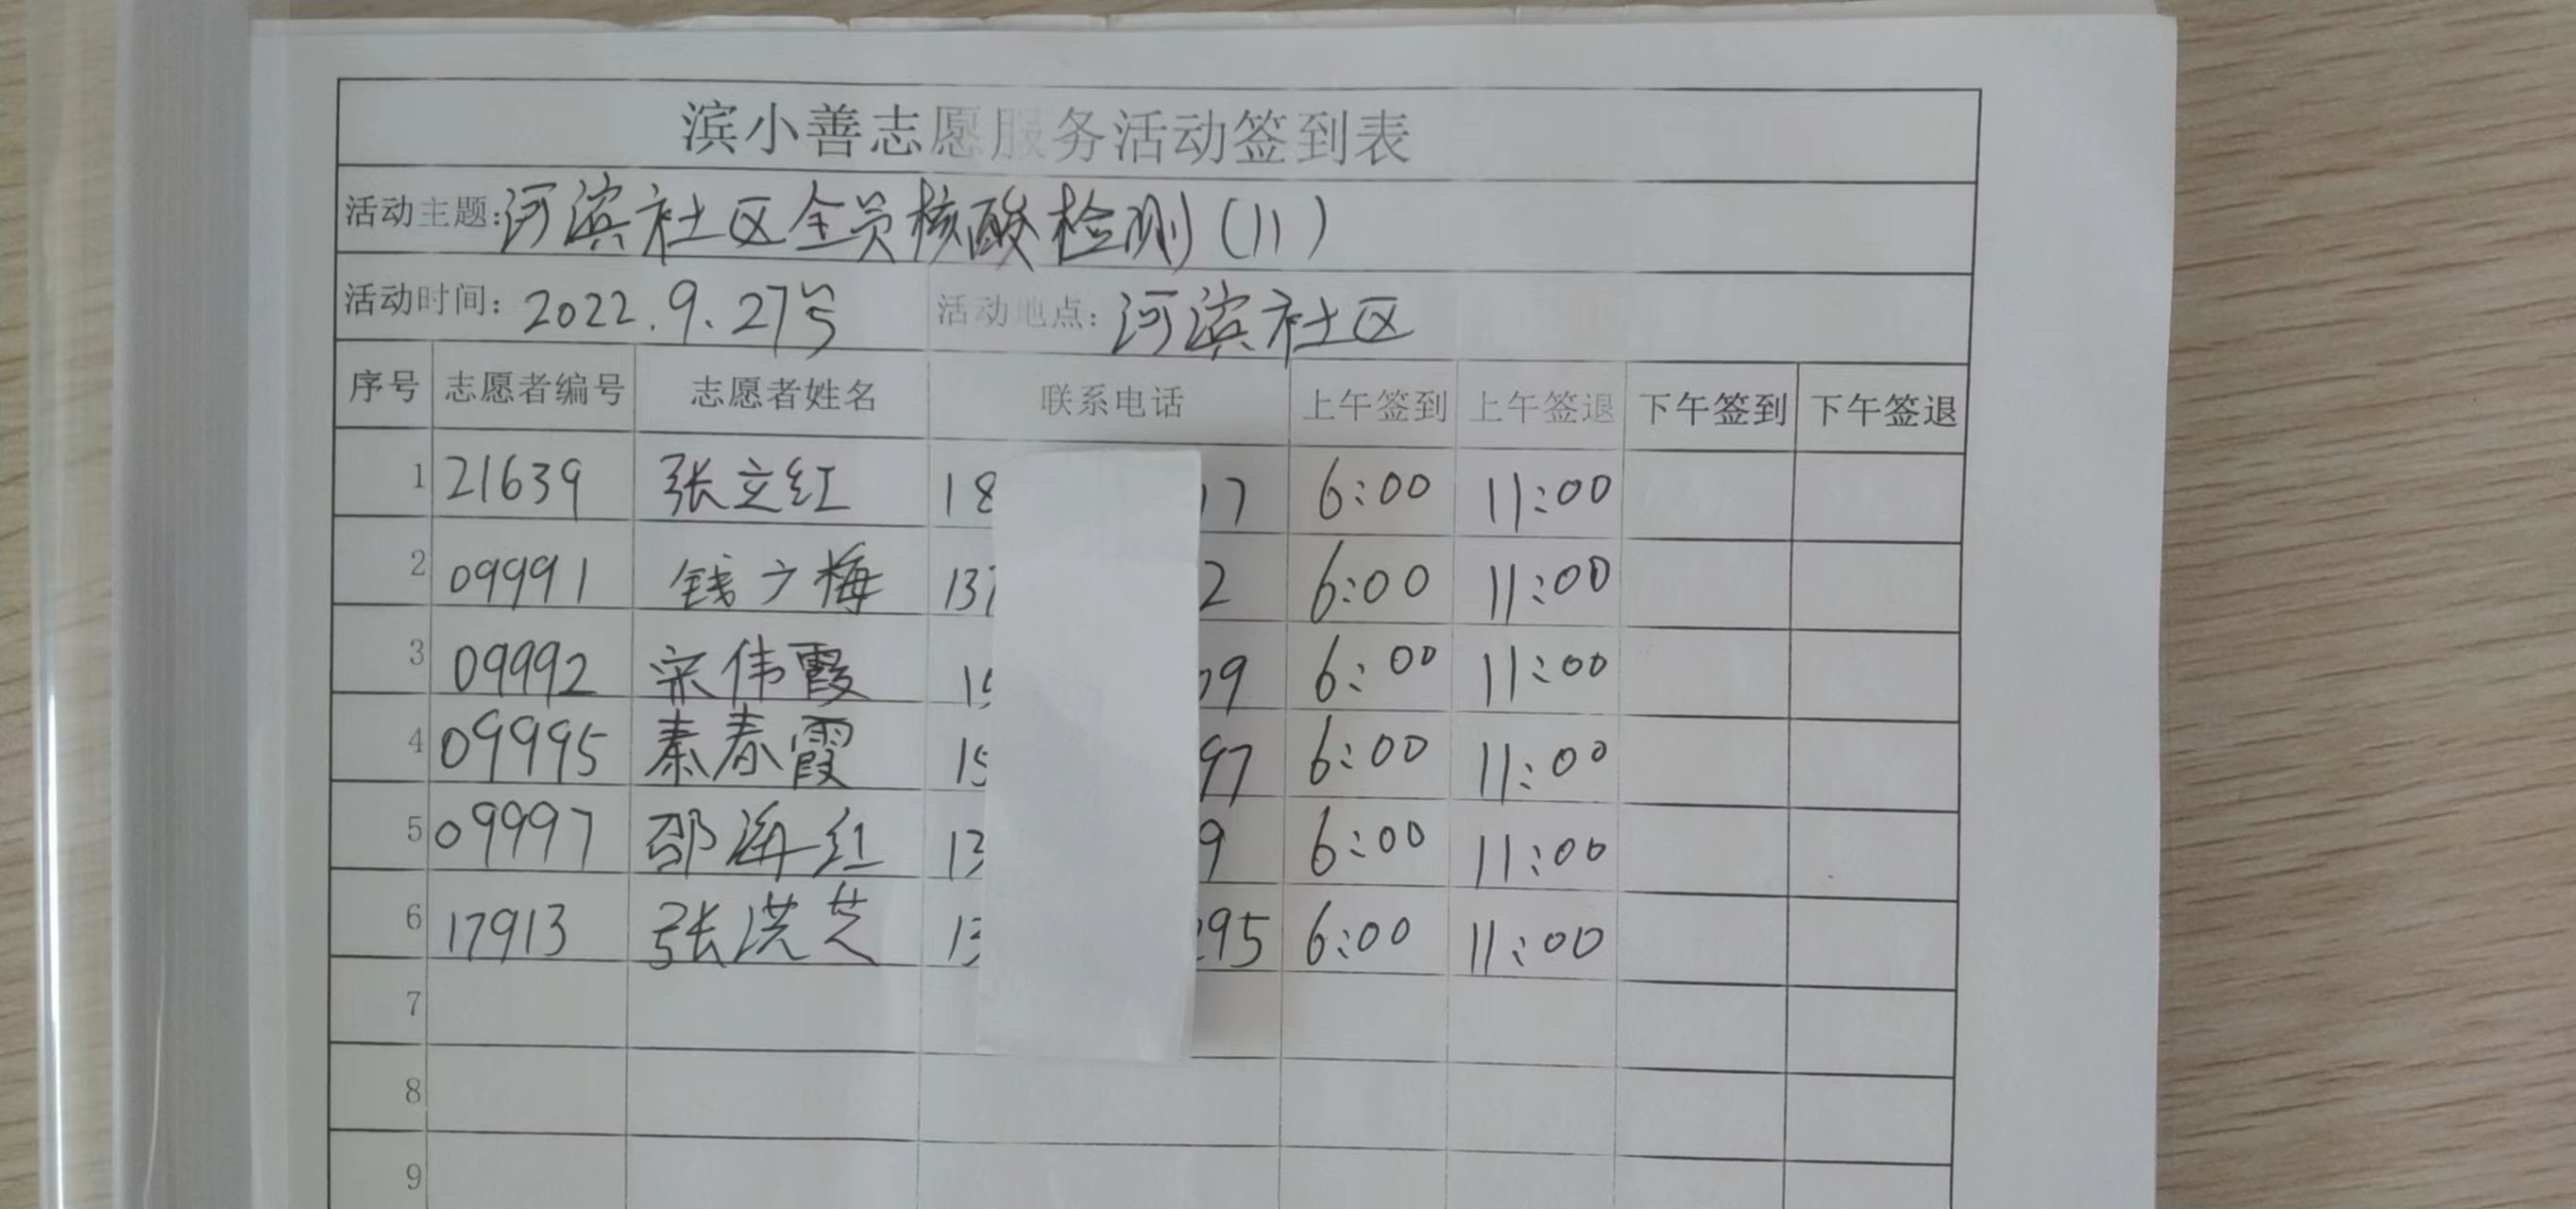 滨小善志愿服务活动签到表
活动主题:河滨社区全员核酸检测(11)
活动时间: 2022.9.27号 活动地点: 河滨社区
序号 志愿者编号 志愿者姓名 联系电话 上午签到 上午签退 下午签到 下午签退
1 21639 张立红 18 17 6:00 11:00
2 09991 钱少梅 137 2 6:00 11:00
3 09992 宋伟霞 15 09 6:00 11:00
4 09995 秦春霞 15 97 6:00 11:00
5 09997 邵海红 13 9 6:00 11:00
6 17913 张洪芝 13 295 6:00 11:00
7
8
9